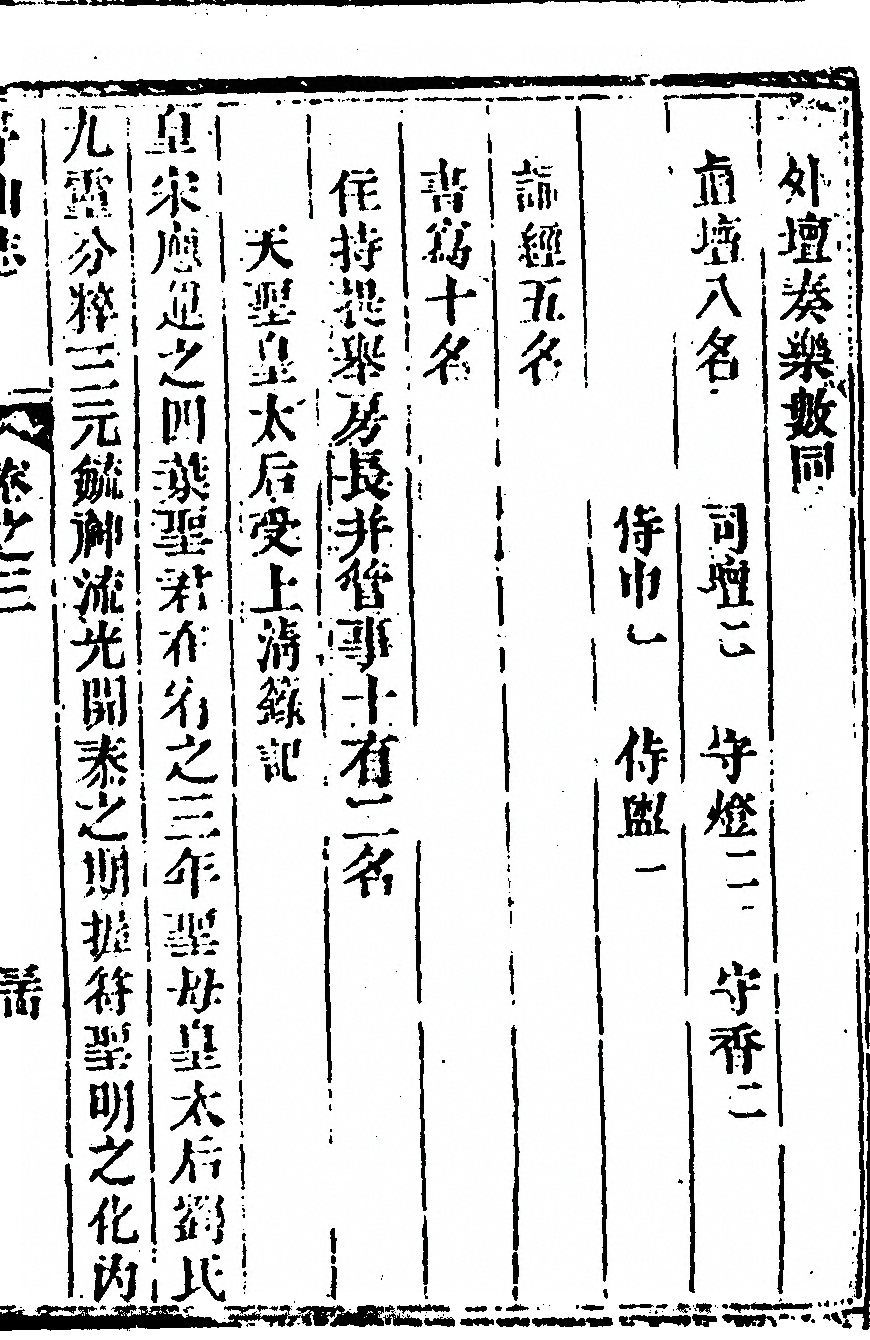 外壇奏樂數同
直壇八名　司壇二　守燈二　守香二
侍巾一　侍盥一
誦經五名
書寫十名
住持提舉房長并管事十有二名
天聖皇太后受上清籙記
皇宋應運之四葉聖君在宥之三年聖母皇太后劉氏
九靈分粹三元毓神流光開泰之期握符聖明之化内
茅山志　卷之三